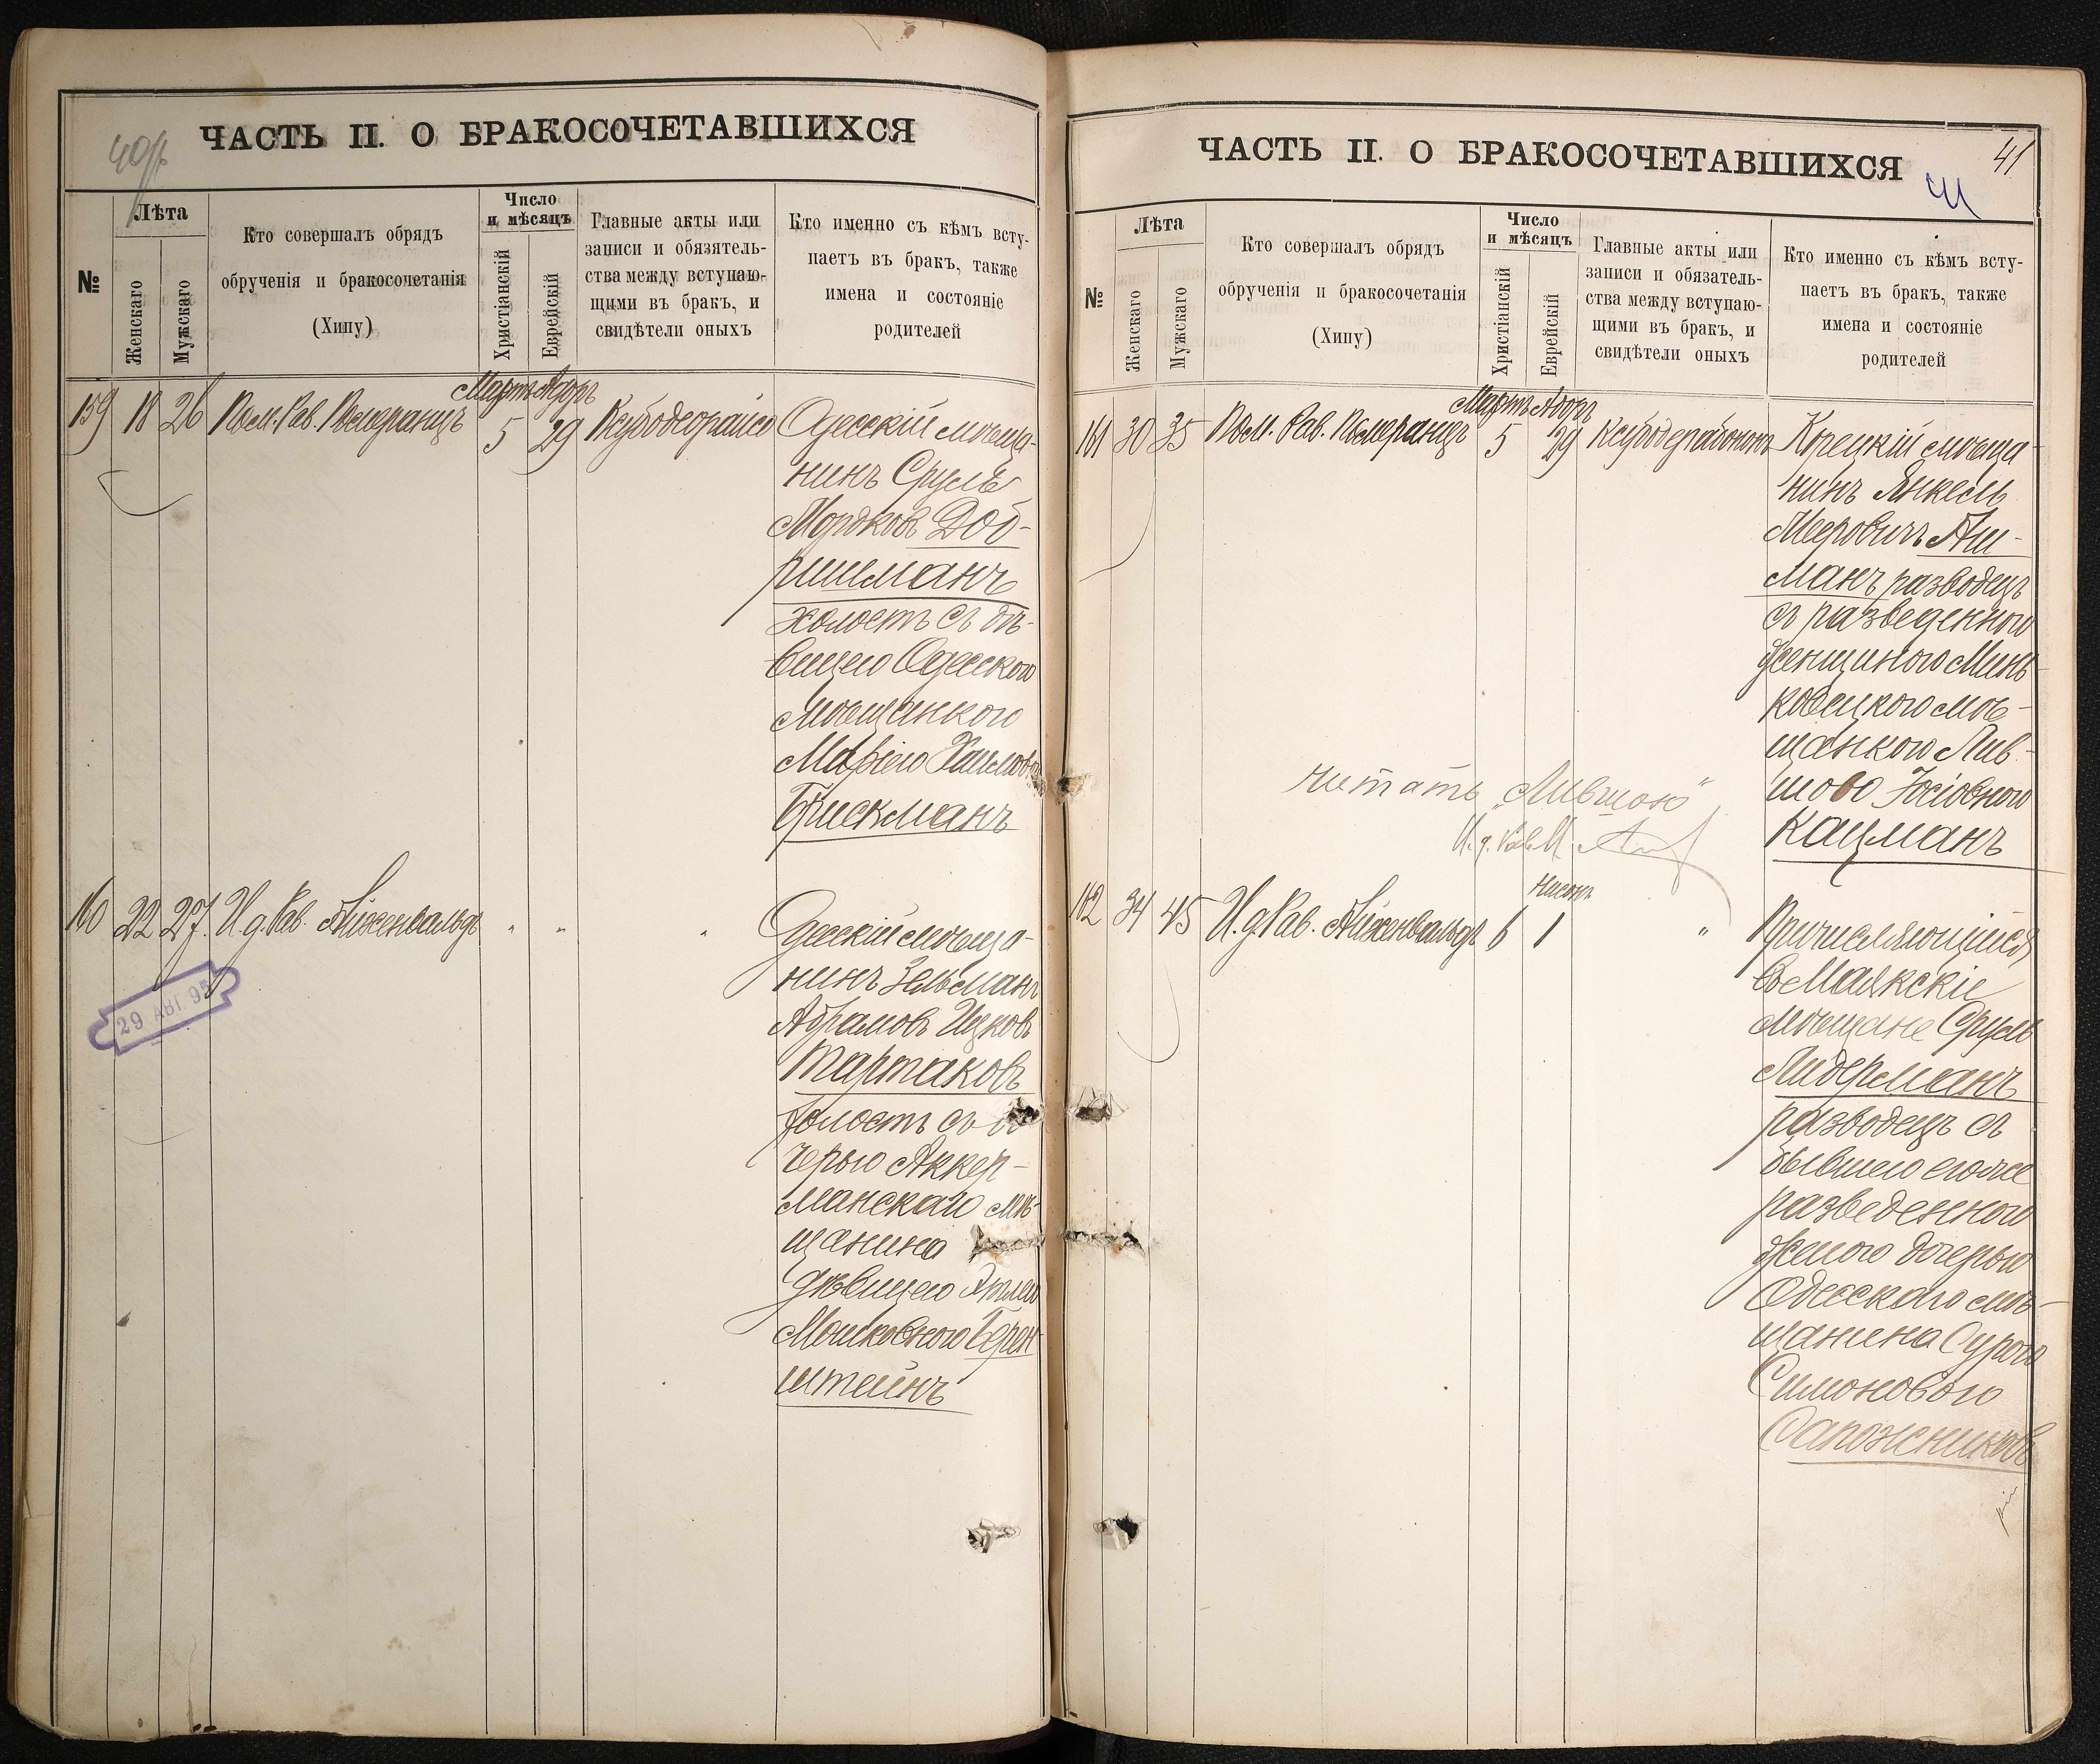 40/
ЧАСТЬ II. О БРАКОСОЧЕТАВШИХСЯ
№
Лѣта
Женскаго
Мужскаго
Кто совершалъ обрядъ
обрученія и бракосочетанія
(Хипу)
Число
и мѣсяцъ
Христіанскій
Еврейскій
Главные акты или
записи и обязятель-
ства между вступаю-
щими въ бракъ, и
свидѣтели оныхъ
Кто именно съ кѣмъ всту-
паетъ въ бракъ, также
имена и состояніе
родителей
Мартъ Адоръ
159 18 26 Пом. Рав. Померанцъ 5 29
Одесскій мѣща-
нинъ Сруль
Мордковъ Доб-
ришманъ
холостъ съ дѣ-
вицею Одесскою
мѣщанкою
Марьею Хаимовою
Брискманъ
160 22 27. И.д. Рав. Айхенвальдъ " " "
29 АВГ. 95
Одесскій мѣща-
нинъ Зельманъ
Абрамовъ Ицковъ
Тартаковъ
холостъ съ до
черью Аккер-
манскаго мѣ-
щанина
дѣвицею
Мошковною Берен
штейнъ
ЧАСТЬ II. О БРАКОСОЧЕТАВШИХСЯ
41
№
Лѣта
Женскаго
Мужскаго
Кто совершалъ обрядъ
обрученія и бракосочетанія
(Хипу)
Число
и мѣсяцъ
Христіанскій
Еврейскій
Главные акты или
записи и обязатель-
ства между вступаю-
щими въ бракъ, и
свидѣтели оныхъ
Кто именно съ кѣмъ всту-
паетъ въ бракъ, также
имена и состояніе
родителей
Мартъ Адоръ
161 30 35 Пом. Рав. Померанцъ 5 29
Корецкій мѣща-
нинъ Янкель
Меровичъ Аш-
манъ разводецъ
съ разведенною
женщиною Минь-
ковецкою мѣ-
щанкою Лив-
шово Іосіовною
Кацманъ
читать „Лившою"
И. д. Рав.
Нисонъ
162 34 45 И.д. Рав. Айхенвальдъ 6 1 "
Причисляющійся
въ Маякскіе
мѣщане Сруль
Лидерманъ
разводецъ съ
бывшею его же
разведенною
женою дочерью
Одесскаго мѣ-
щанина Сурою
Симоновою
Сапожниковъ